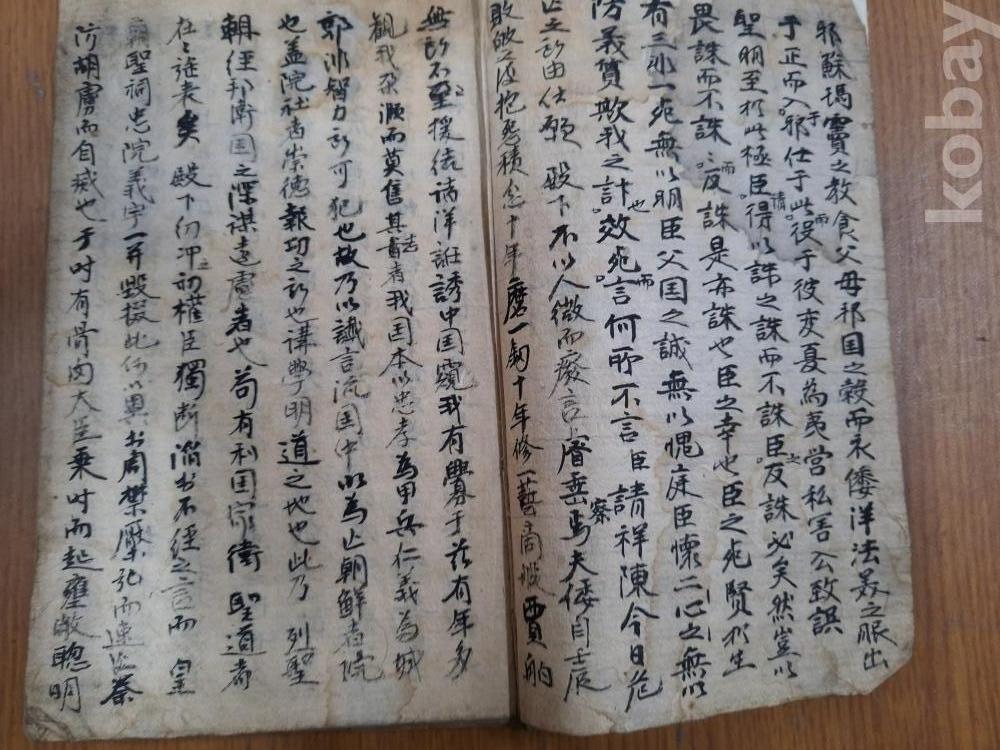 邪蘇瑪竇之敎食父母邦国之穀而衣倭洋法㚣之服出
于正而入于邪仕于此而役于彼変夏為夷営私害公致誤
聖明至於此極臣請得以誅之誅而不誅臣之反誅必矣然豈以
畏誅而不誅而反誅是亦誅也臣之幸也臣之死賢於生
有三外一死無以明臣父国之誠無以愧庭臣懷二心之無以
防義賀欺我之計也效死而言何所不言臣請祥察陳今日危
亡之所由仕願 殿下不以人微而癈言層壵島夫倭自壬辰
敗破之後抱怨積忿十年磨一釖十年修一藝商販賈舶
無所不至援結請洋誑誘中国窺我有釁于玆有年多
觀我 灝而莫售其者我国本以忠孝為甲兵仁義為城
郭非智力所可犯也故乃以讖言流国中以為亡朝鮮者院
也盖院祠者崇德報功之所也講學明道之地也此乃 列聖
朝経邦衛国之深謀遠慮者也苟有利国家衛 聖道者
在在旌表矣 殿下幼冲之初權臣獨断滔於不経之言而 皇
廟聖祠忠院義宇一并毀撤此何以異於周禁檿弧而速亡秦
防胡虜而自滅也于时有骨肉大臣乗时而起壅蔽聰明
kobay